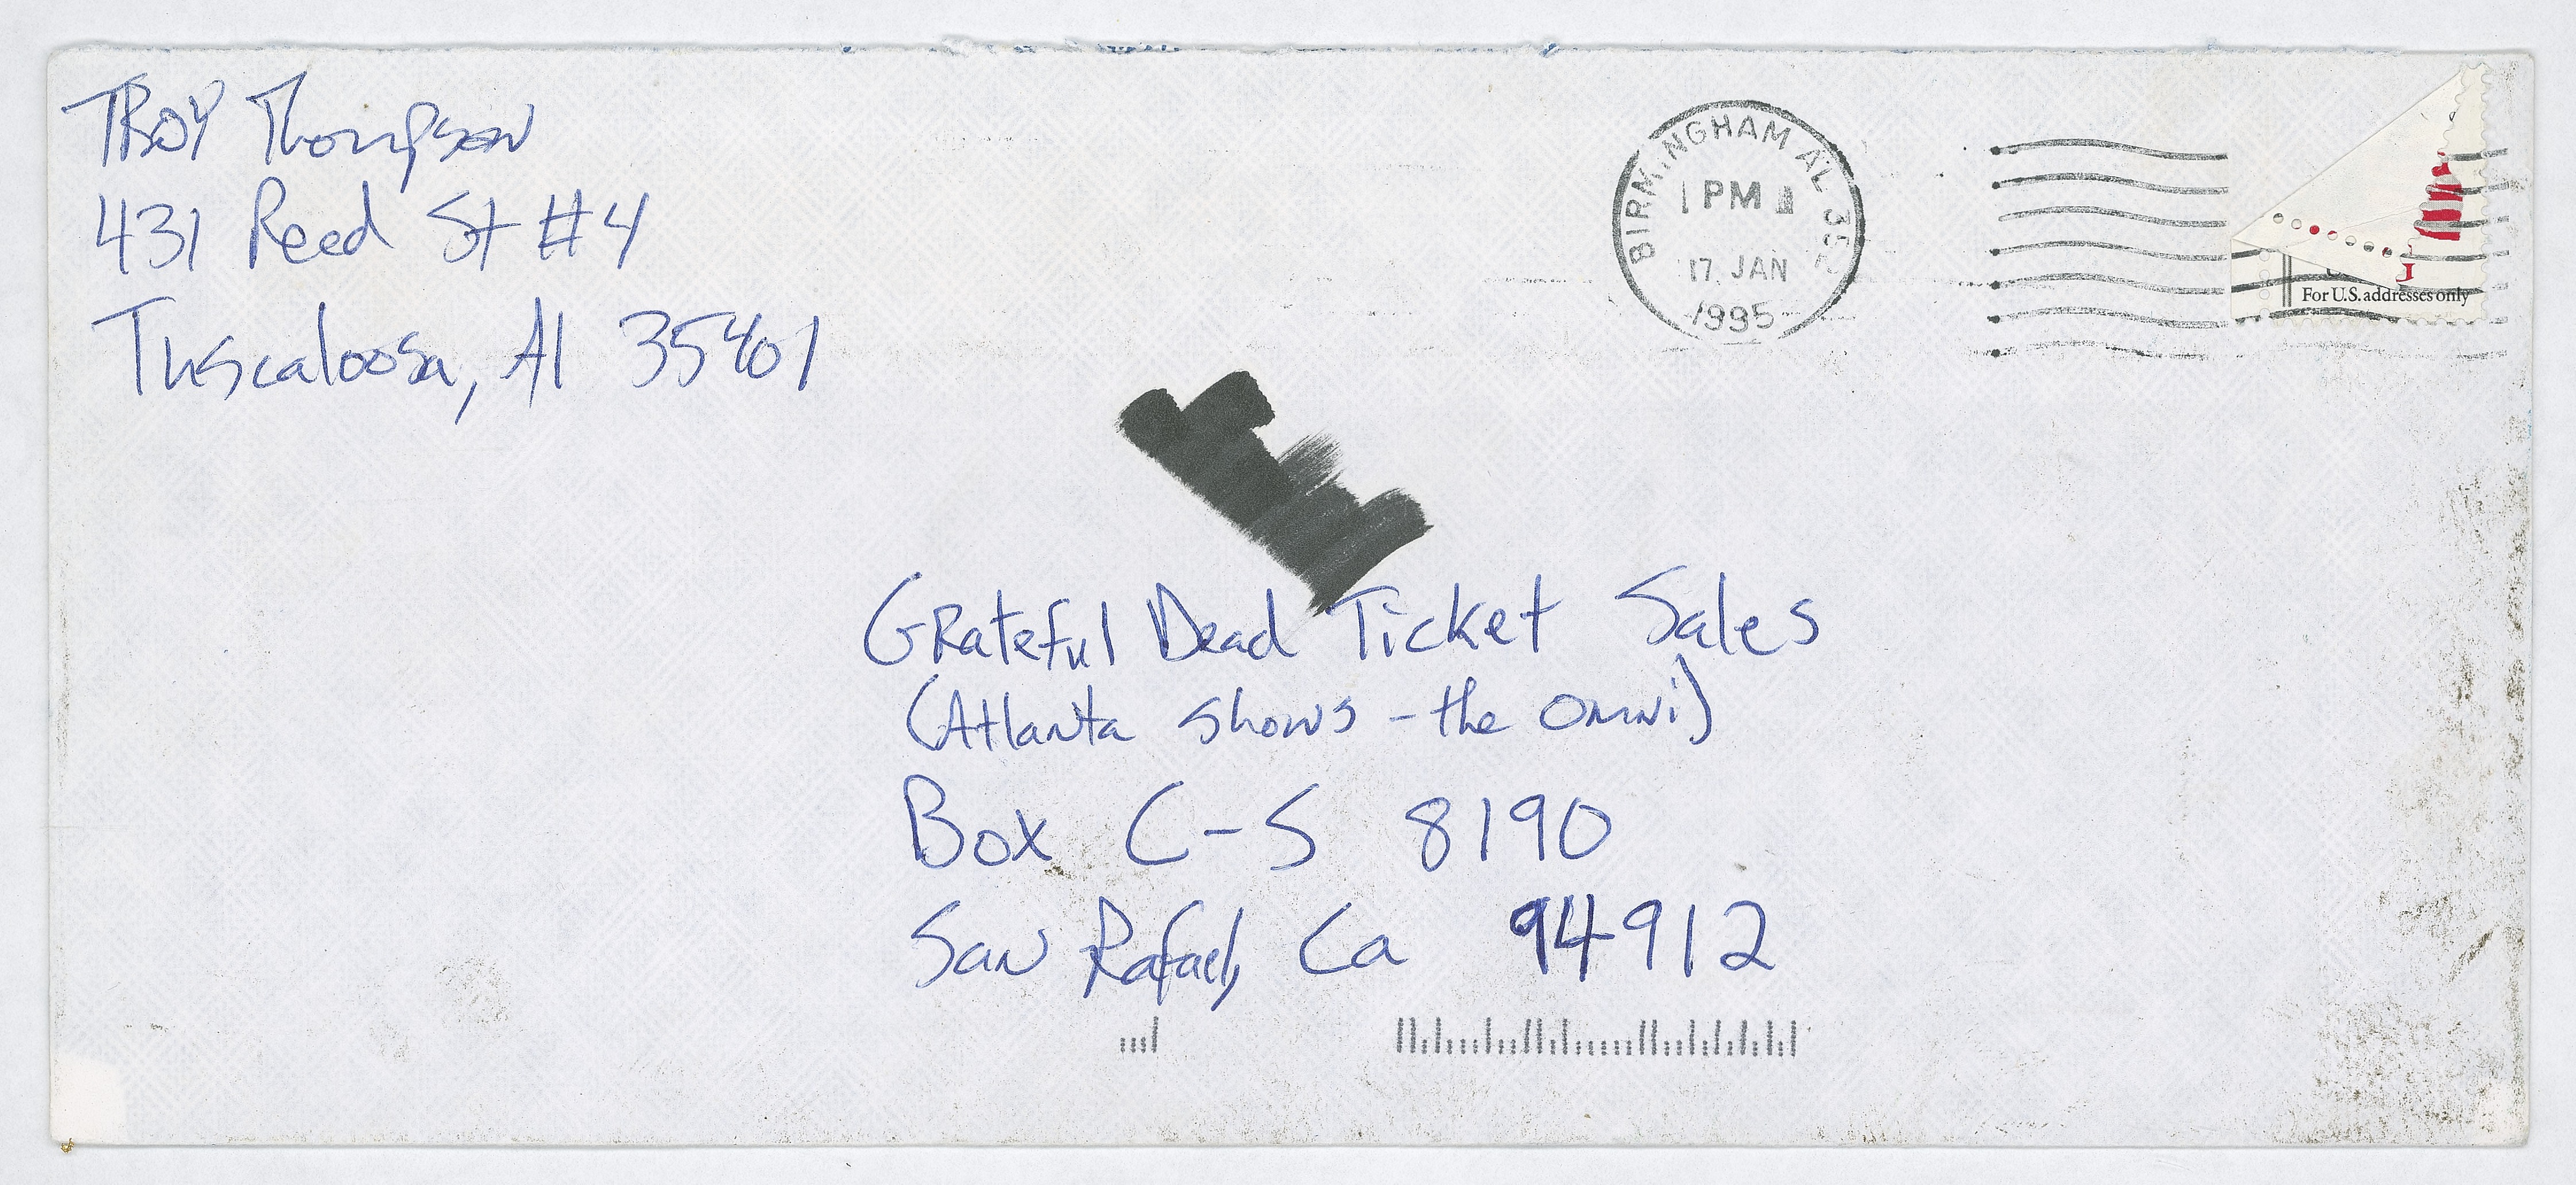 TROY Thompson
431 Reed St #4
Tuscaloosa, Al 35401
BIRMINGHAM AL
PM
17 JAN
1995
For U.S. addresses only
Grateful Dead Ticket Sales
(Atlanta shows - the Omni)
Box C-S 8190
San Rafael, Ca 94912